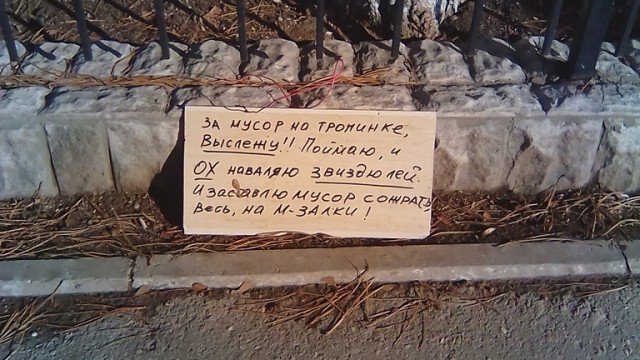 За мусор на тропинке,
Выслежу!! Поймаю, и
ОХ наваляю звиздюлей.
И заставлю мусор сожрать
весь, на М-ЗАЛКИ!